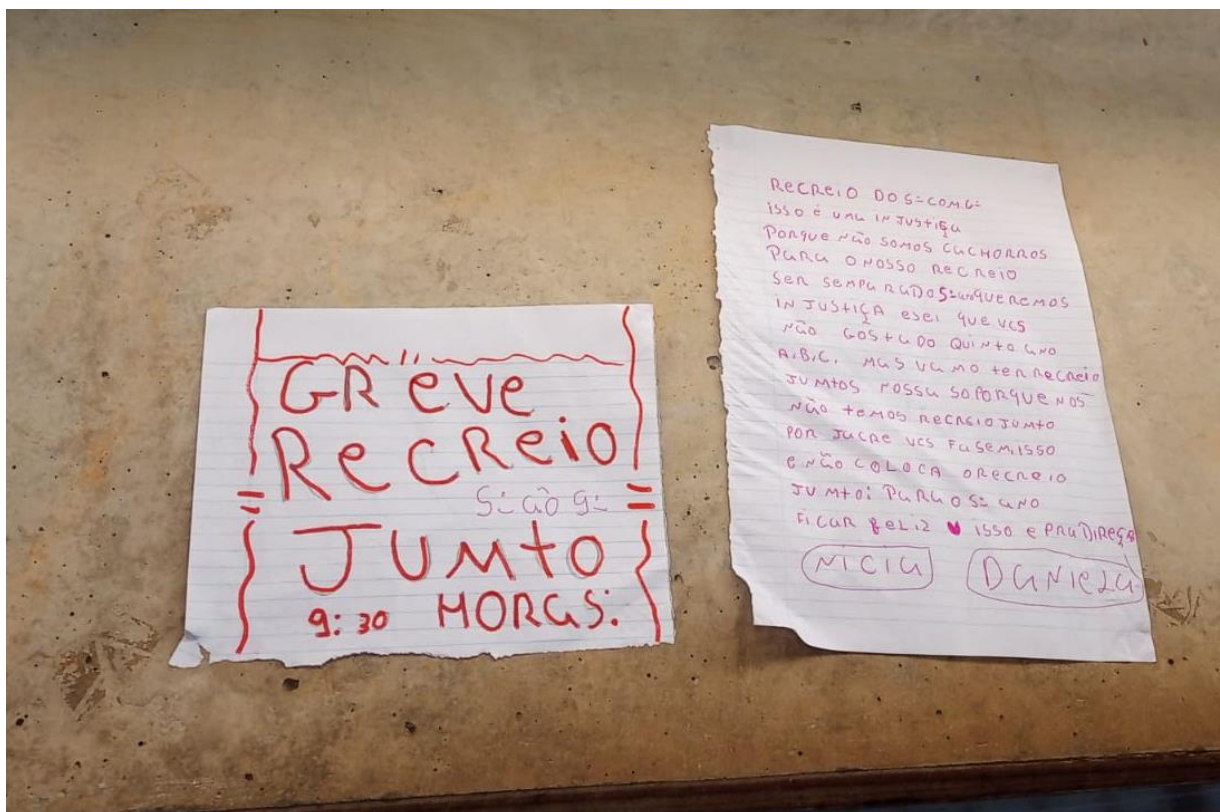 GREVE
RECREIO
5º ao 9º
JUMTO
9:30 HORAS:
RECREIO DO 5º COM 6º
ISSO É UMA INJUSTIÇA
PORQUE NÃO SOMOS CACHORROS
PARA O NOSSO RECREIO
SER SEMPARADO 5º ano QUEREMOS
INJUSTIÇA E SEI QUE VCS
NÃO GOSTA DO QUINTO ANO
A.B.C. MAS VAMO TER RECREIO
JUMTOS POSSA SO PORQUE NOS
NÃO TEMOS RECREIO JUMTO
POR JACRE VCS FASEM ISSO
E NÃO COLOCA O RECREIO
JUMTO: PARA O 5º ANO
FICAR FELIZ ♥ ISSO E PRA DIREÇÃ
NICIA DANIELA